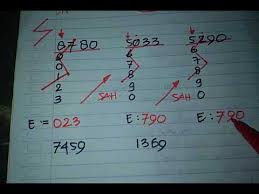 8780 5033 5290
9 6 6
0 7 7
1 8 8
2 9 9
3 SAH 0 SAH 0
E = 023 E: 790 E: 790
7459 1369